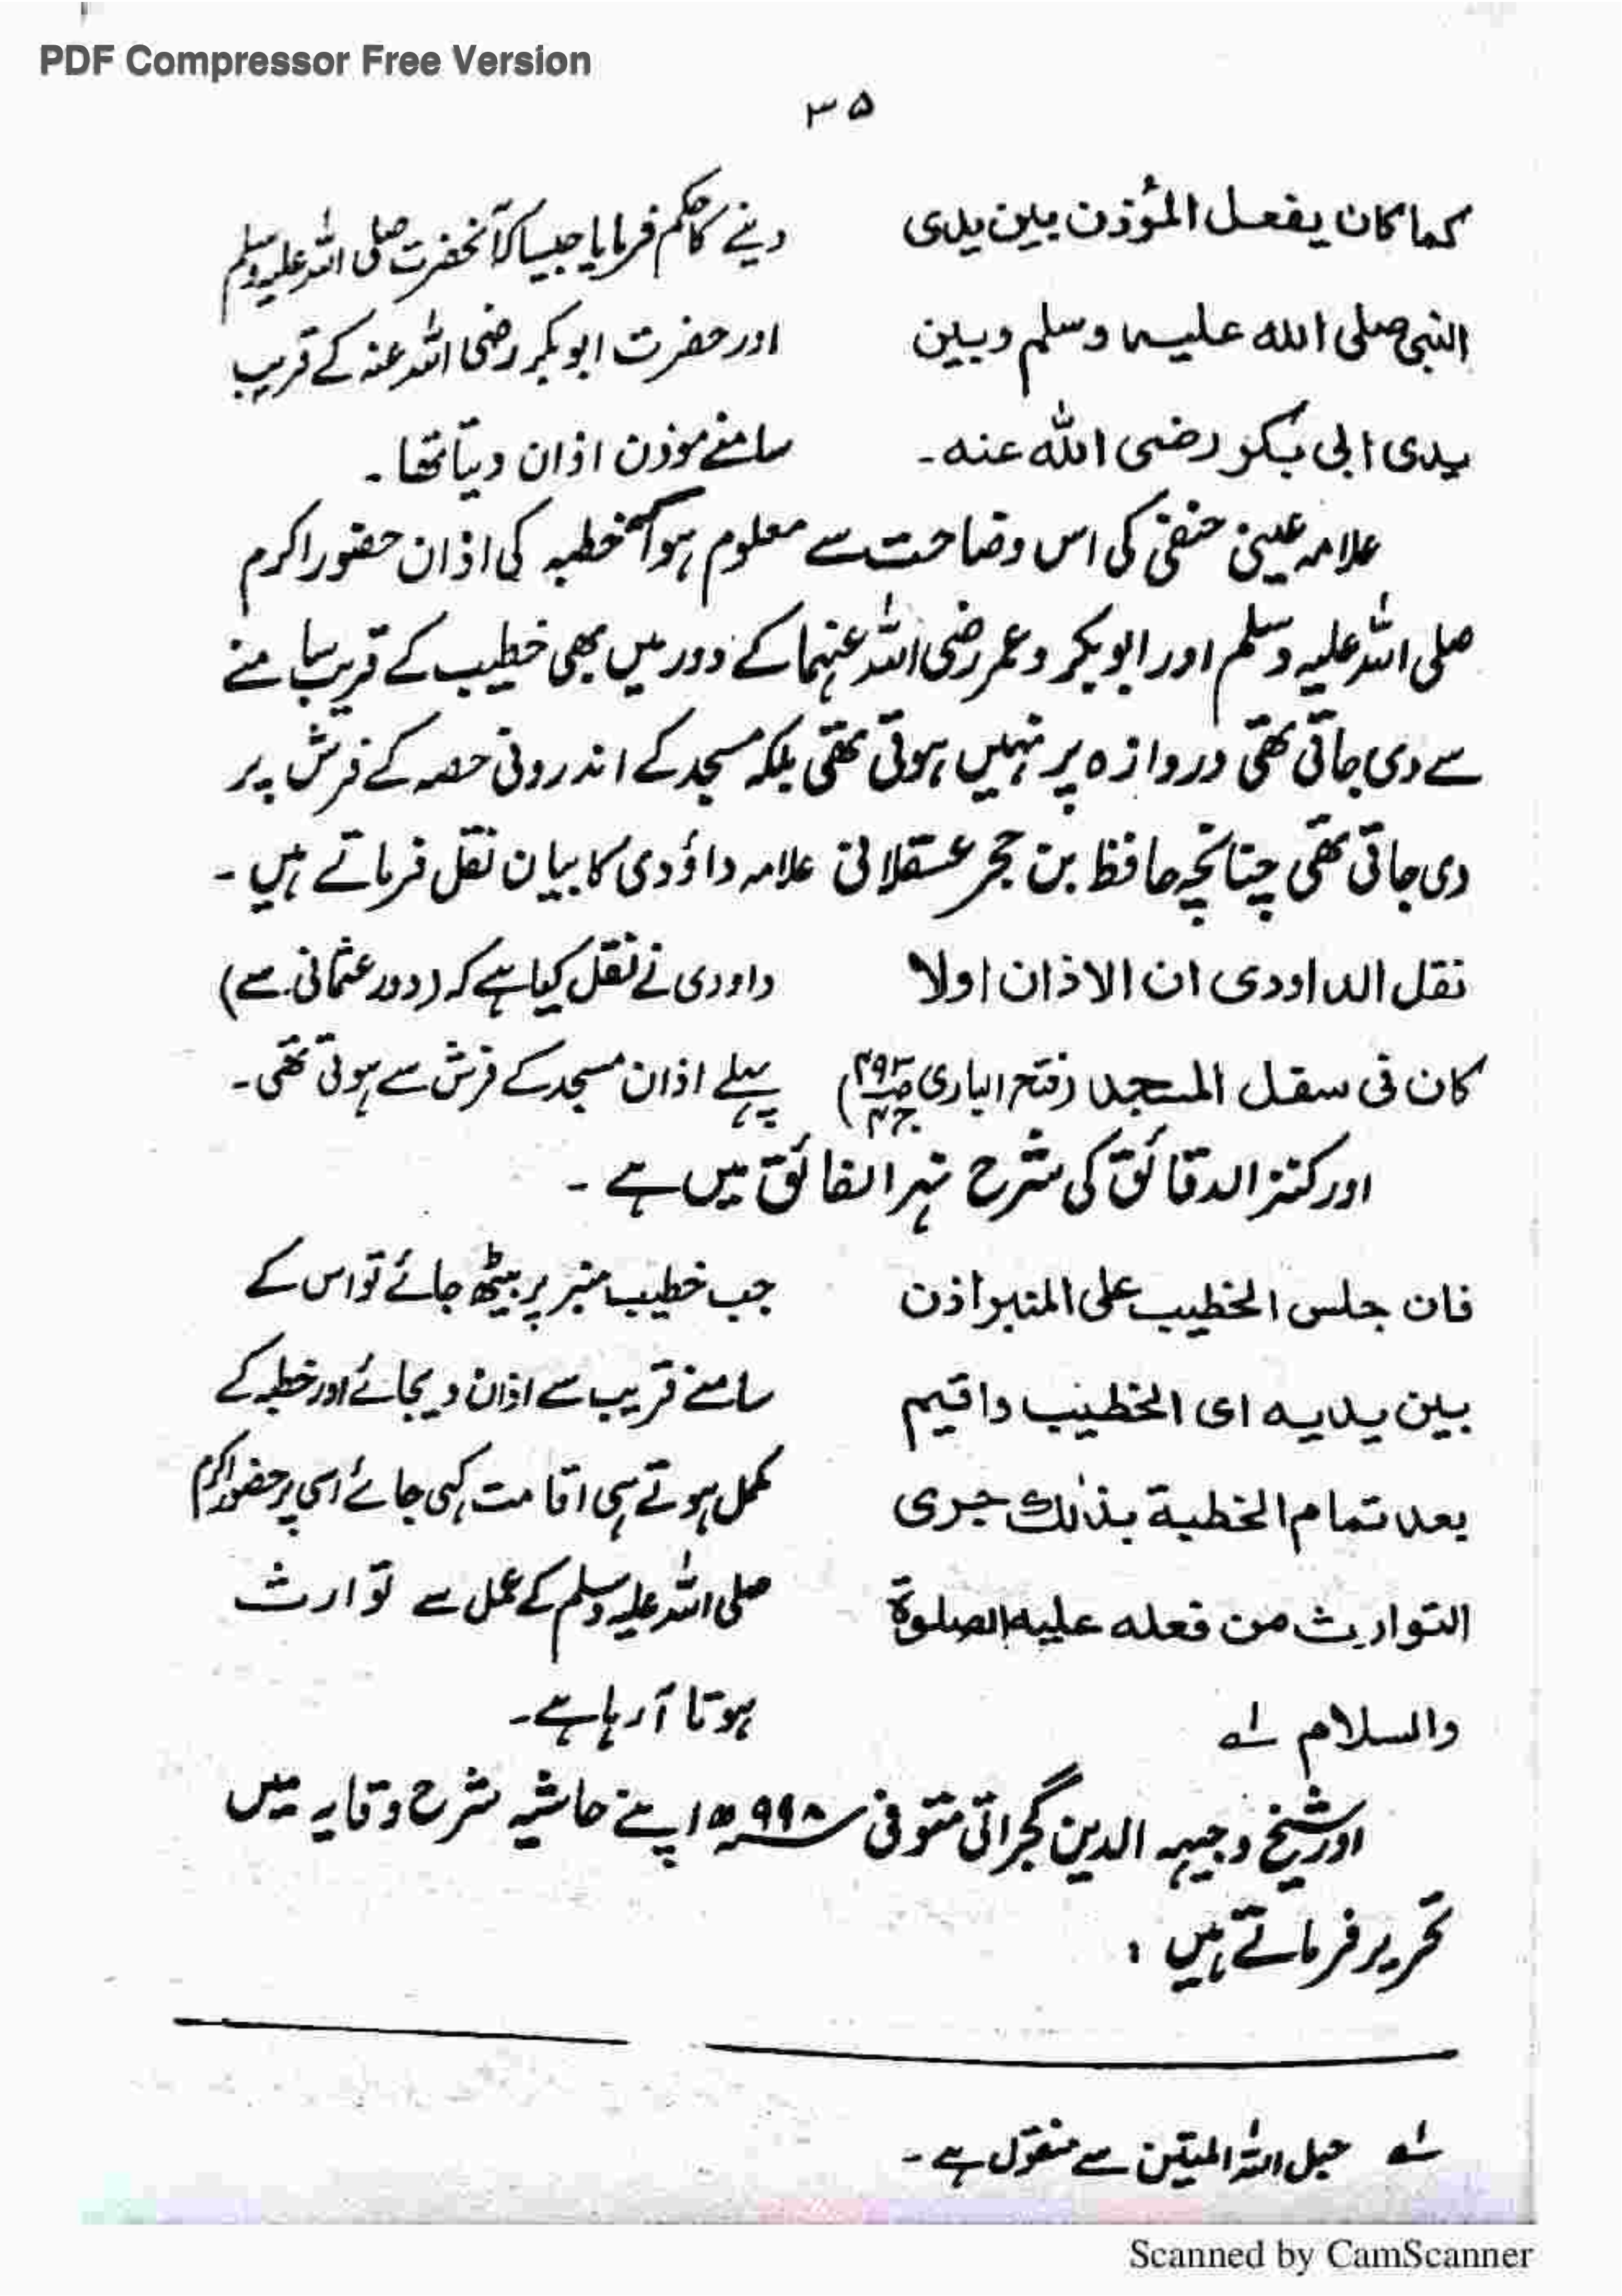 PDF Compressor Free Version
۳۵
کما کان یفعل المؤذن بین یدی
النبی صلی اللہ علیہ وسلم وبین
یدی ابی بکر رضی اللہ عنہ۔
دینے کا حکم فرمایا جیسا کہ آنحضرت صلی اللہ علیہ وسلم
اور حضرت ابوبکر رضی اللہ عنہ کے قریب
سامنے موذن اذان دیتا تھا۔
علامہ عینی حنفی کی اس وضاحت سے معلوم ہوا کہ خطبہ کی اذان حضور اکرم
صلی اللہ علیہ وسلم اور ابوبکر و عمر رضی اللہ عنہما کے دور میں بھی خطیب کے قریب سامنے
سے دی جاتی تھی دروازہ پر نہیں ہوتی تھی بلکہ مسجد کے اندرونی حصہ کے فرش پر
دی جاتی تھی چنانچہ حافظ بن حجر عسقلانی علامہ داؤدی کا بیان نقل فرماتے ہیں۔
نقل الداودی ان الاذان اولا
کان فی سفل المسجد (فتح الباری ص۳۹۴ ج۲)
داودی نے نقل کیا ہے کہ (دور عثمانی سے)
پہلے اذان مسجد کے فرش سے ہوتی تھی۔
اور کنز الدقائق کی شرح نہر الفائق میں ہے۔
فان جلس الخطیب علی المنبر اذن
بین یدیہ ای الخطیب واقیم
بعد تمام الخطبۃ بذٰلک جری
التوارث من فعلہ علیہ الصلوۃ
والسلام لہ
جب خطیب منبر پر بیٹھ جائے تو اس کے
سامنے قریب سے اذان دیجائے اور خطبہ کے
مکمل ہوتے ہی اقامت کہی جائے اسی پر حضور اکرم
صلی اللہ علیہ وسلم کے عمل سے توارث
ہوتا آرہا ہے۔
اور شیخ وجیہہ الدین گجراتی متوفی ۹۹۸ھ اپنے حاشیہ شرح وقایہ میں
تحریر فرماتے ہیں :
لہ حبل اللہ المتین سے منقول ہے۔
Scanned by CamScanner